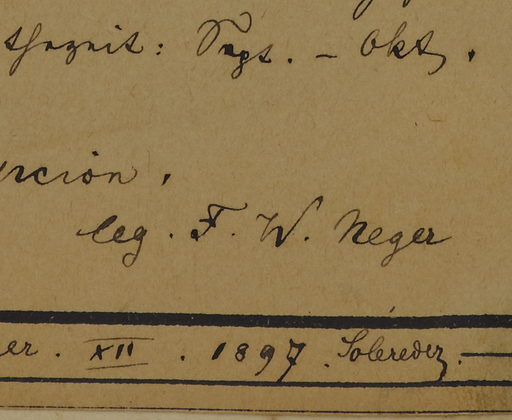 thezeit: Sept. – Okt.
rcion.
leg. F. W. Neger
er. XII. 1897. Solereder.